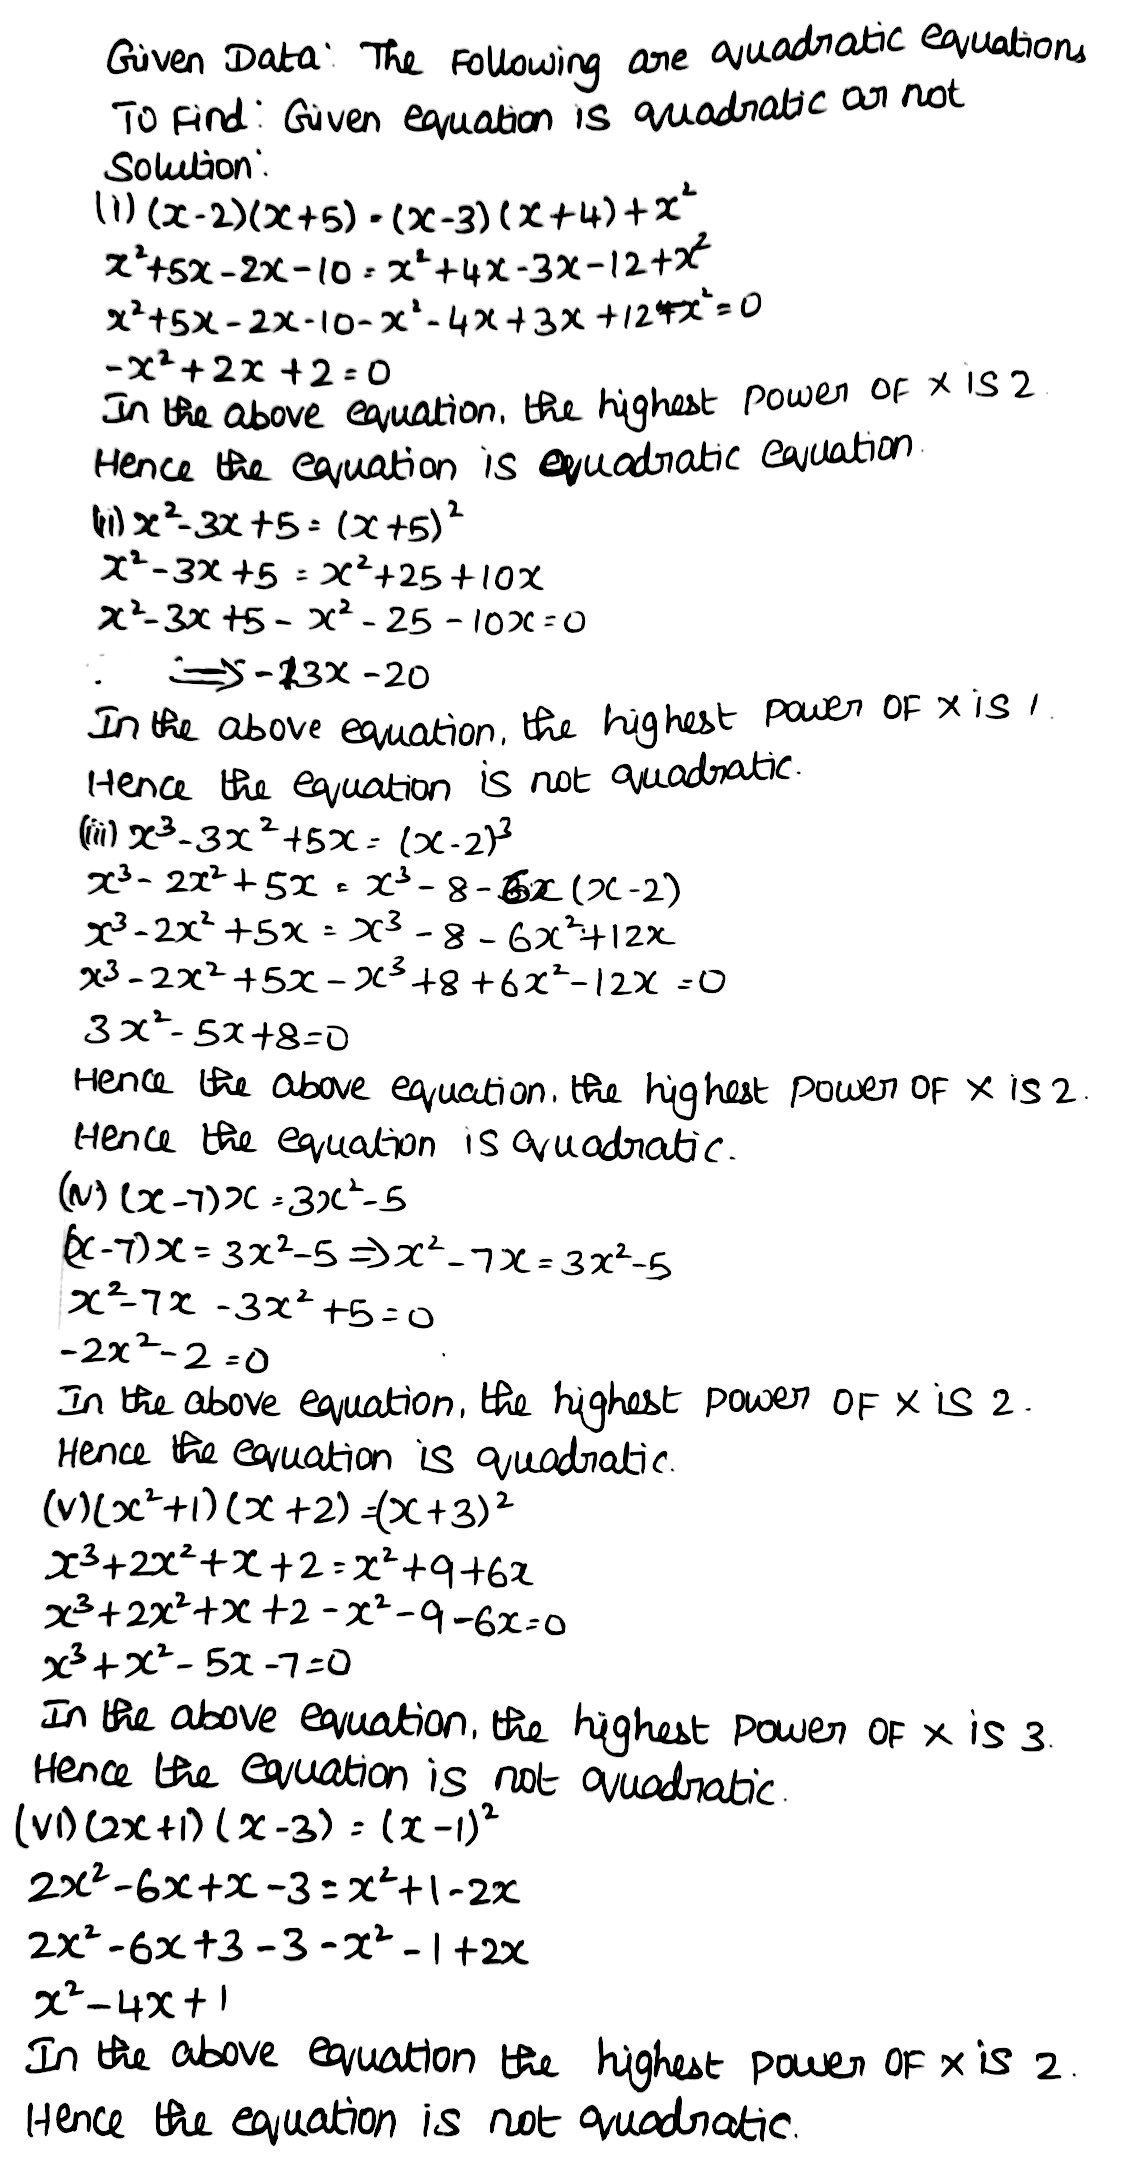 Given Data: The Following are quadratic equations
To Find: Given equation is quadratic or not
Solution:
(i) (x-2)(x+5) = (x-3)(x+4)+x²
x²+5x-2x-10 = x²+4x-3x-12+x²
x²+5x-2x-10-x²-4x+3x+12-x²=0
-x²+2x+2=0
In the above equation, the highest power OF x is 2.
Hence the equation is quadratic equation.
(ii) x²-3x+5 = (x+5)²
x²-3x+5 = x²+25+10x
x²-3x+5-x²-25-10x=0
⇒ -13x-20
In the above equation, the highest power OF x is 1.
Hence the equation is not quadratic.
(iii) x³-3x²+5x = (x-2)³
x³-2x²+5x = x³-8-6x(x-2)
x³-2x²+5x = x³-8-6x²+12x
x³-2x²+5x-x³+8+6x²-12x=0
3x²-5x+8=0
Hence the above equation, the highest power OF x is 2.
Hence the equation is quadratic.
(iv) (x-7)x = 3x²-5
(x-7)x = 3x²-5 ⇒ x²-7x = 3x²-5
x²-7x-3x²+5=0
-2x²-2=0
In the above equation, the highest power OF x is 2.
Hence the equation is quadratic.
(v) (x²+1)(x+2) = (x+3)²
x³+2x²+x+2 = x²+9+6x
x³+2x²+x+2-x²-9-6x=0
x³+x²-5x-7=0
In the above equation, the highest power OF x is 3.
Hence the equation is not quadratic.
(vi) (2x+1)(x-3) = (x-1)²
2x²-6x+x-3 = x²+1-2x
2x²-6x+3-3-x²-1+2x
x²-4x+1
In the above equation the highest power OF x is 2.
Hence the equation is not quadratic.